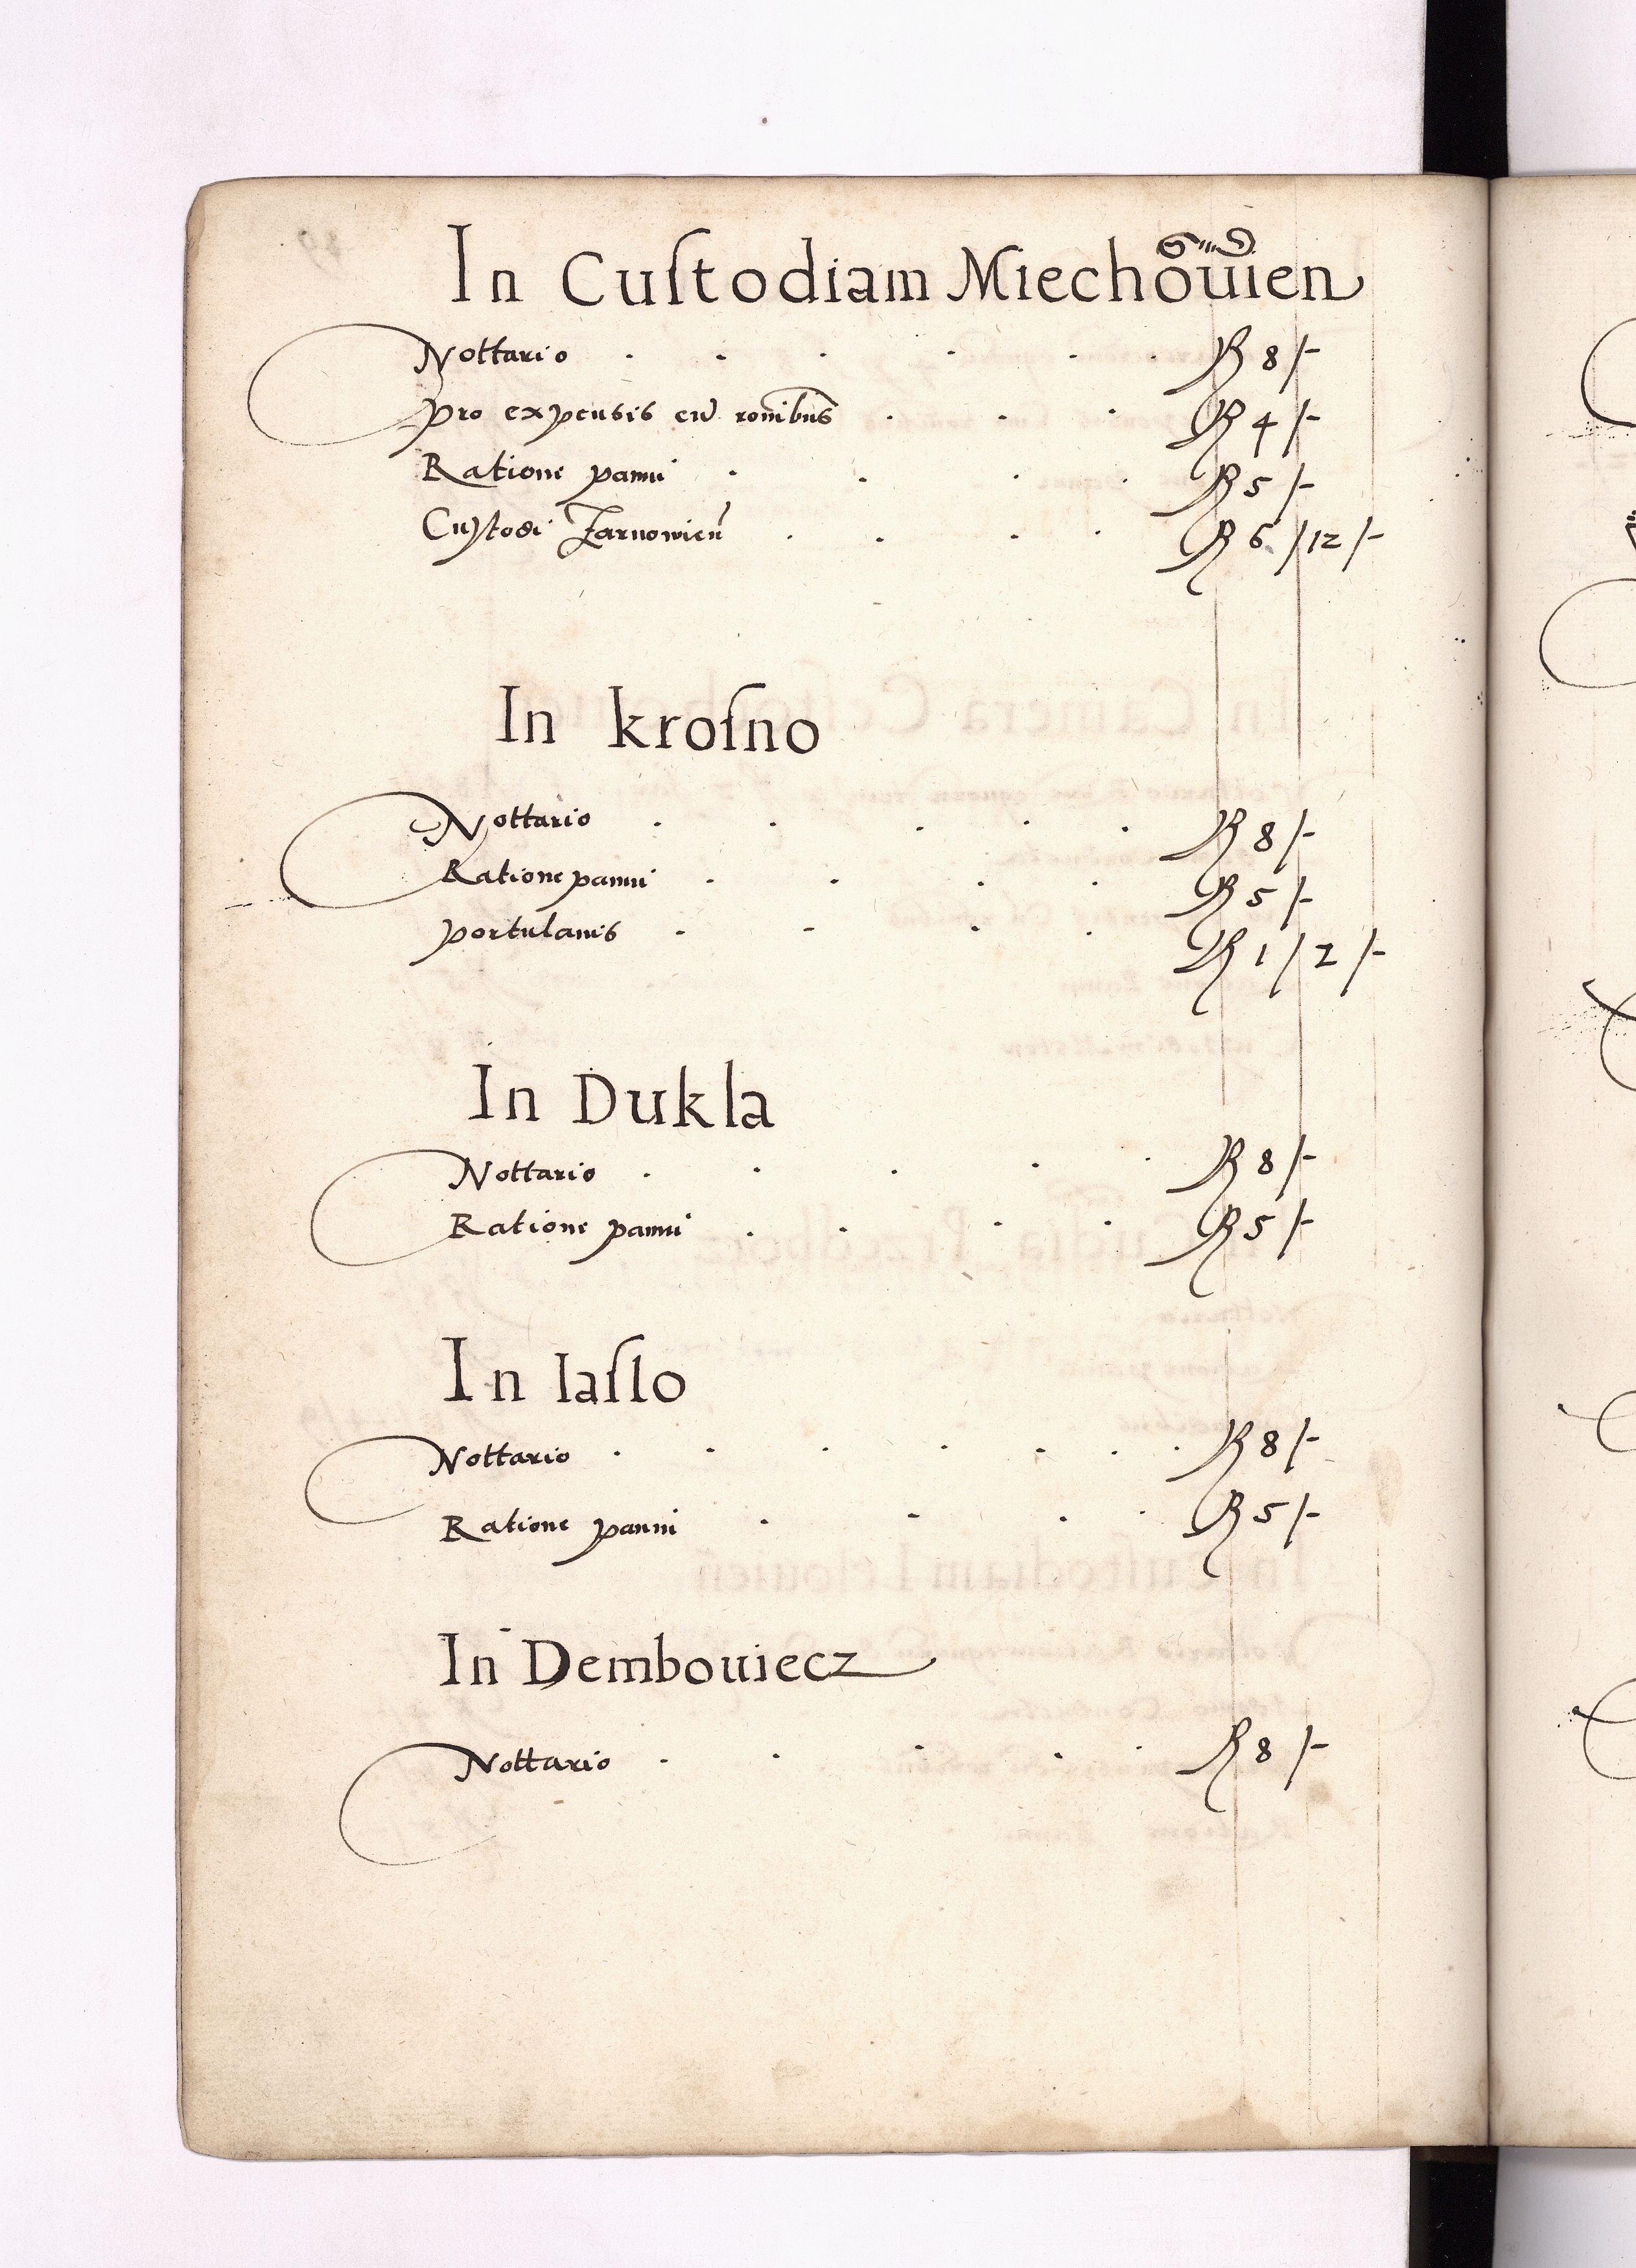 In Cuſtodiam Miechouien
Nottario . . . . . . R 8/-
pro expensis cũ rõnibus . . . R 4/-
Ratione panni . . . . R 5/-
Custodi Zarnowieñ . . . . R 6/12/-
In kroſno
Nottario . . . . . R 8/-
Ratione panni . . . . R 5/-
portulanis . . . . R 1/2/-
In Dukla
Nottario . . . . . R 8/-
Ratione panni . . . . R 5/-
In Iaſlo
Nottario . . . . . . . R 8/-
Ratione panni . . . . R 5/-
In Dembouiecz
Nottario . . . . . R 8/-